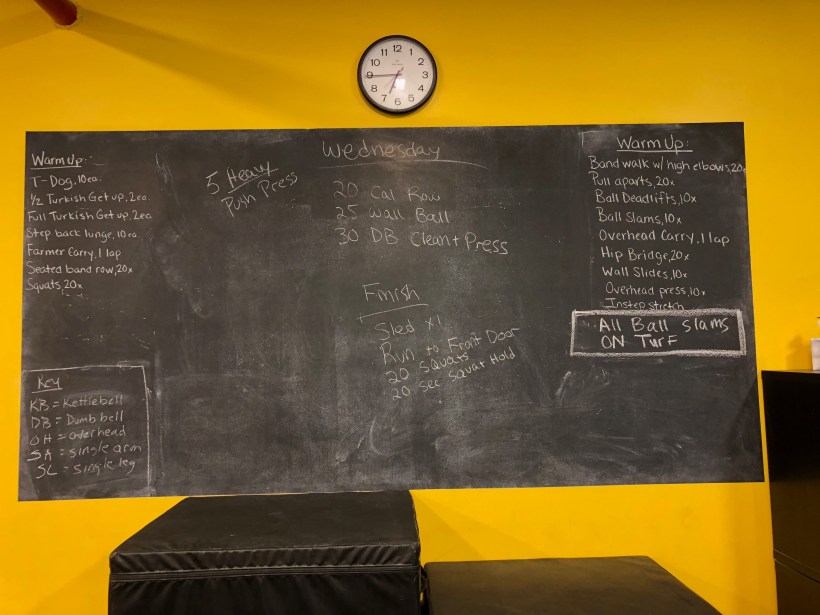 12
1
2
3
4
5
6
7
8
9
10
11
Warm Up:
T-Dog, 10 ea.
1/2 Turkish Get up, 2 ea.
Full Turkish Get up, 2 ea.
Step back lunge, 10 ea.
Farmer Carry, 1 lap
Seated band row, 20x
Squats, 20x
Key
KB = Kettlebell
DB = Dumbbell
OH = overhead
SA = single arm
SL = single leg
5 Heavy
Push Press
Wednesday
20 Cal Row
25 Wall Ball
30 DB Clean + Press
Finish
Sled x1
Run to Front Door
20 Squats
20 Sec Squat Hold
Warm Up:
Band walk w/ high elbows, 20x
Pull aparts, 20x
Ball Deadlifts, 10x
Ball Slams, 10x
Overhead Carry, 1 lap
Hip Bridge, 20x
Wall Slides, 10x
Overhead press, 10x
Instep stretch
All Ball Slams
ON TURF